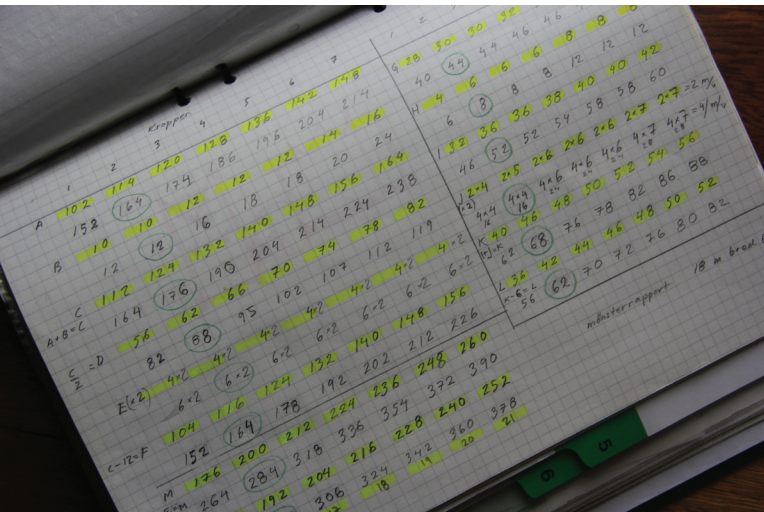 Kroppen
1 2 3 4 5 6 7
A 102 114 120 128 136 142 148
152 164 174 186 196 204 214
B 10 10 12 12 12 14 16
12 12 16 18 18 20 24
C 112 124 132 140 148 156 164
A+B=C 164 176 190 204 214 224 238
56 62 66 70 74 78 82
C/2 =D 82 88 95 102 107 112 119
E(×2) 4×2 4×2 4×2 4×2 4×2 4×2 4×2
6×2 6×2 6×2 6×2 6×2 6×2 6×2
104 116 124 132 140 148 156
C-12=F 152 164 178 192 202 212 226
M 176 200 212 224 236 248 260
264 284 318 336 354 372 390
192 204 216 228 240 252
306 324 342 360 378
18 19 20 21
1 2
G 28 30 30 32
40 44 44 46 46
H 4 6 6 6 8 8 8
6 8 8 8 12 12 12
I 32 36 36 38 40 40 42
46 52 52 54 58 58 60
2×4 2×5 2×6 2×6 2×6 2×7 2×7 =2 m/
(×2) 4×4 4×4 4×6 4×6 4×6 4×7 4×7 =4/m/
16 16 24 24 24 28 28
K 40 46 48 50 52 54 56
62 68 76 78 82 86 88
L 36 42 44 46 48 50 52
K-6=L 56 62 70 72 76 80 82
mönsterrapport 18 m bred
6 5